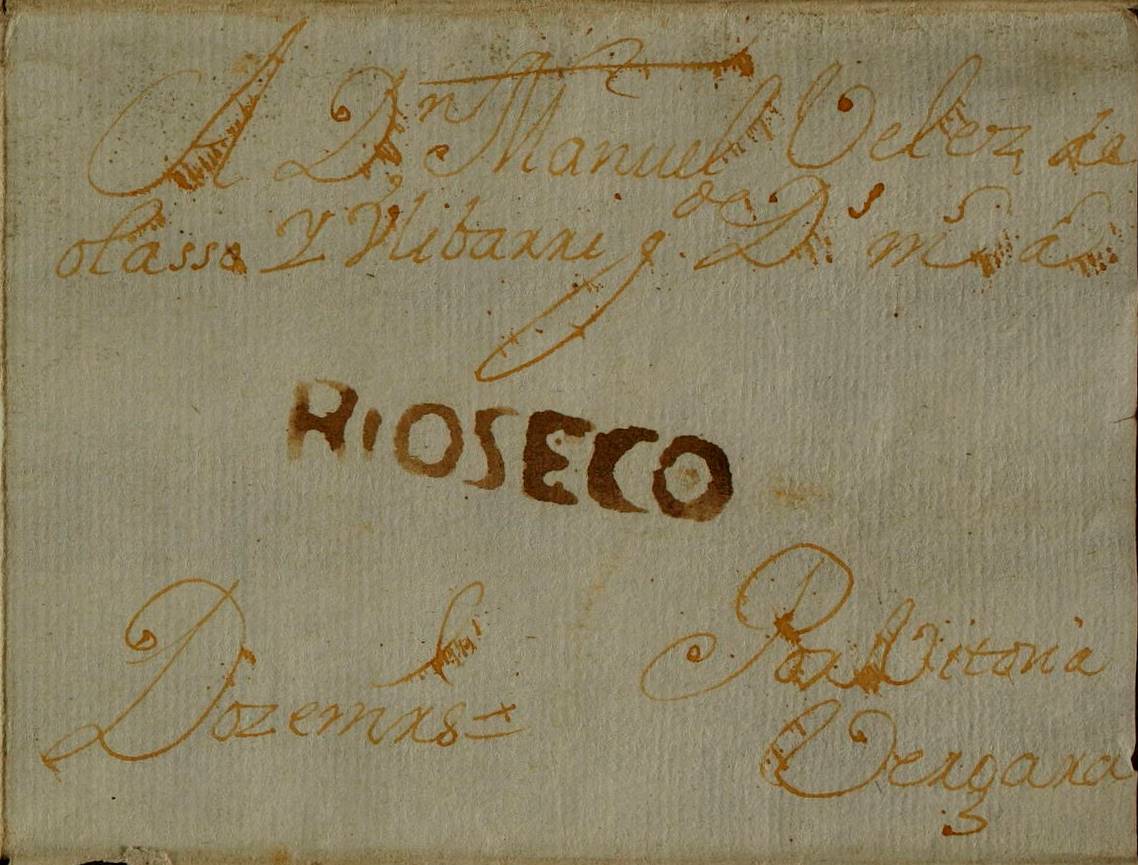 A Dn Manuel Velez de
olasso Y Ulibarri g. de Ds ms as
RIOSECO
Por Vitoria
Vergara